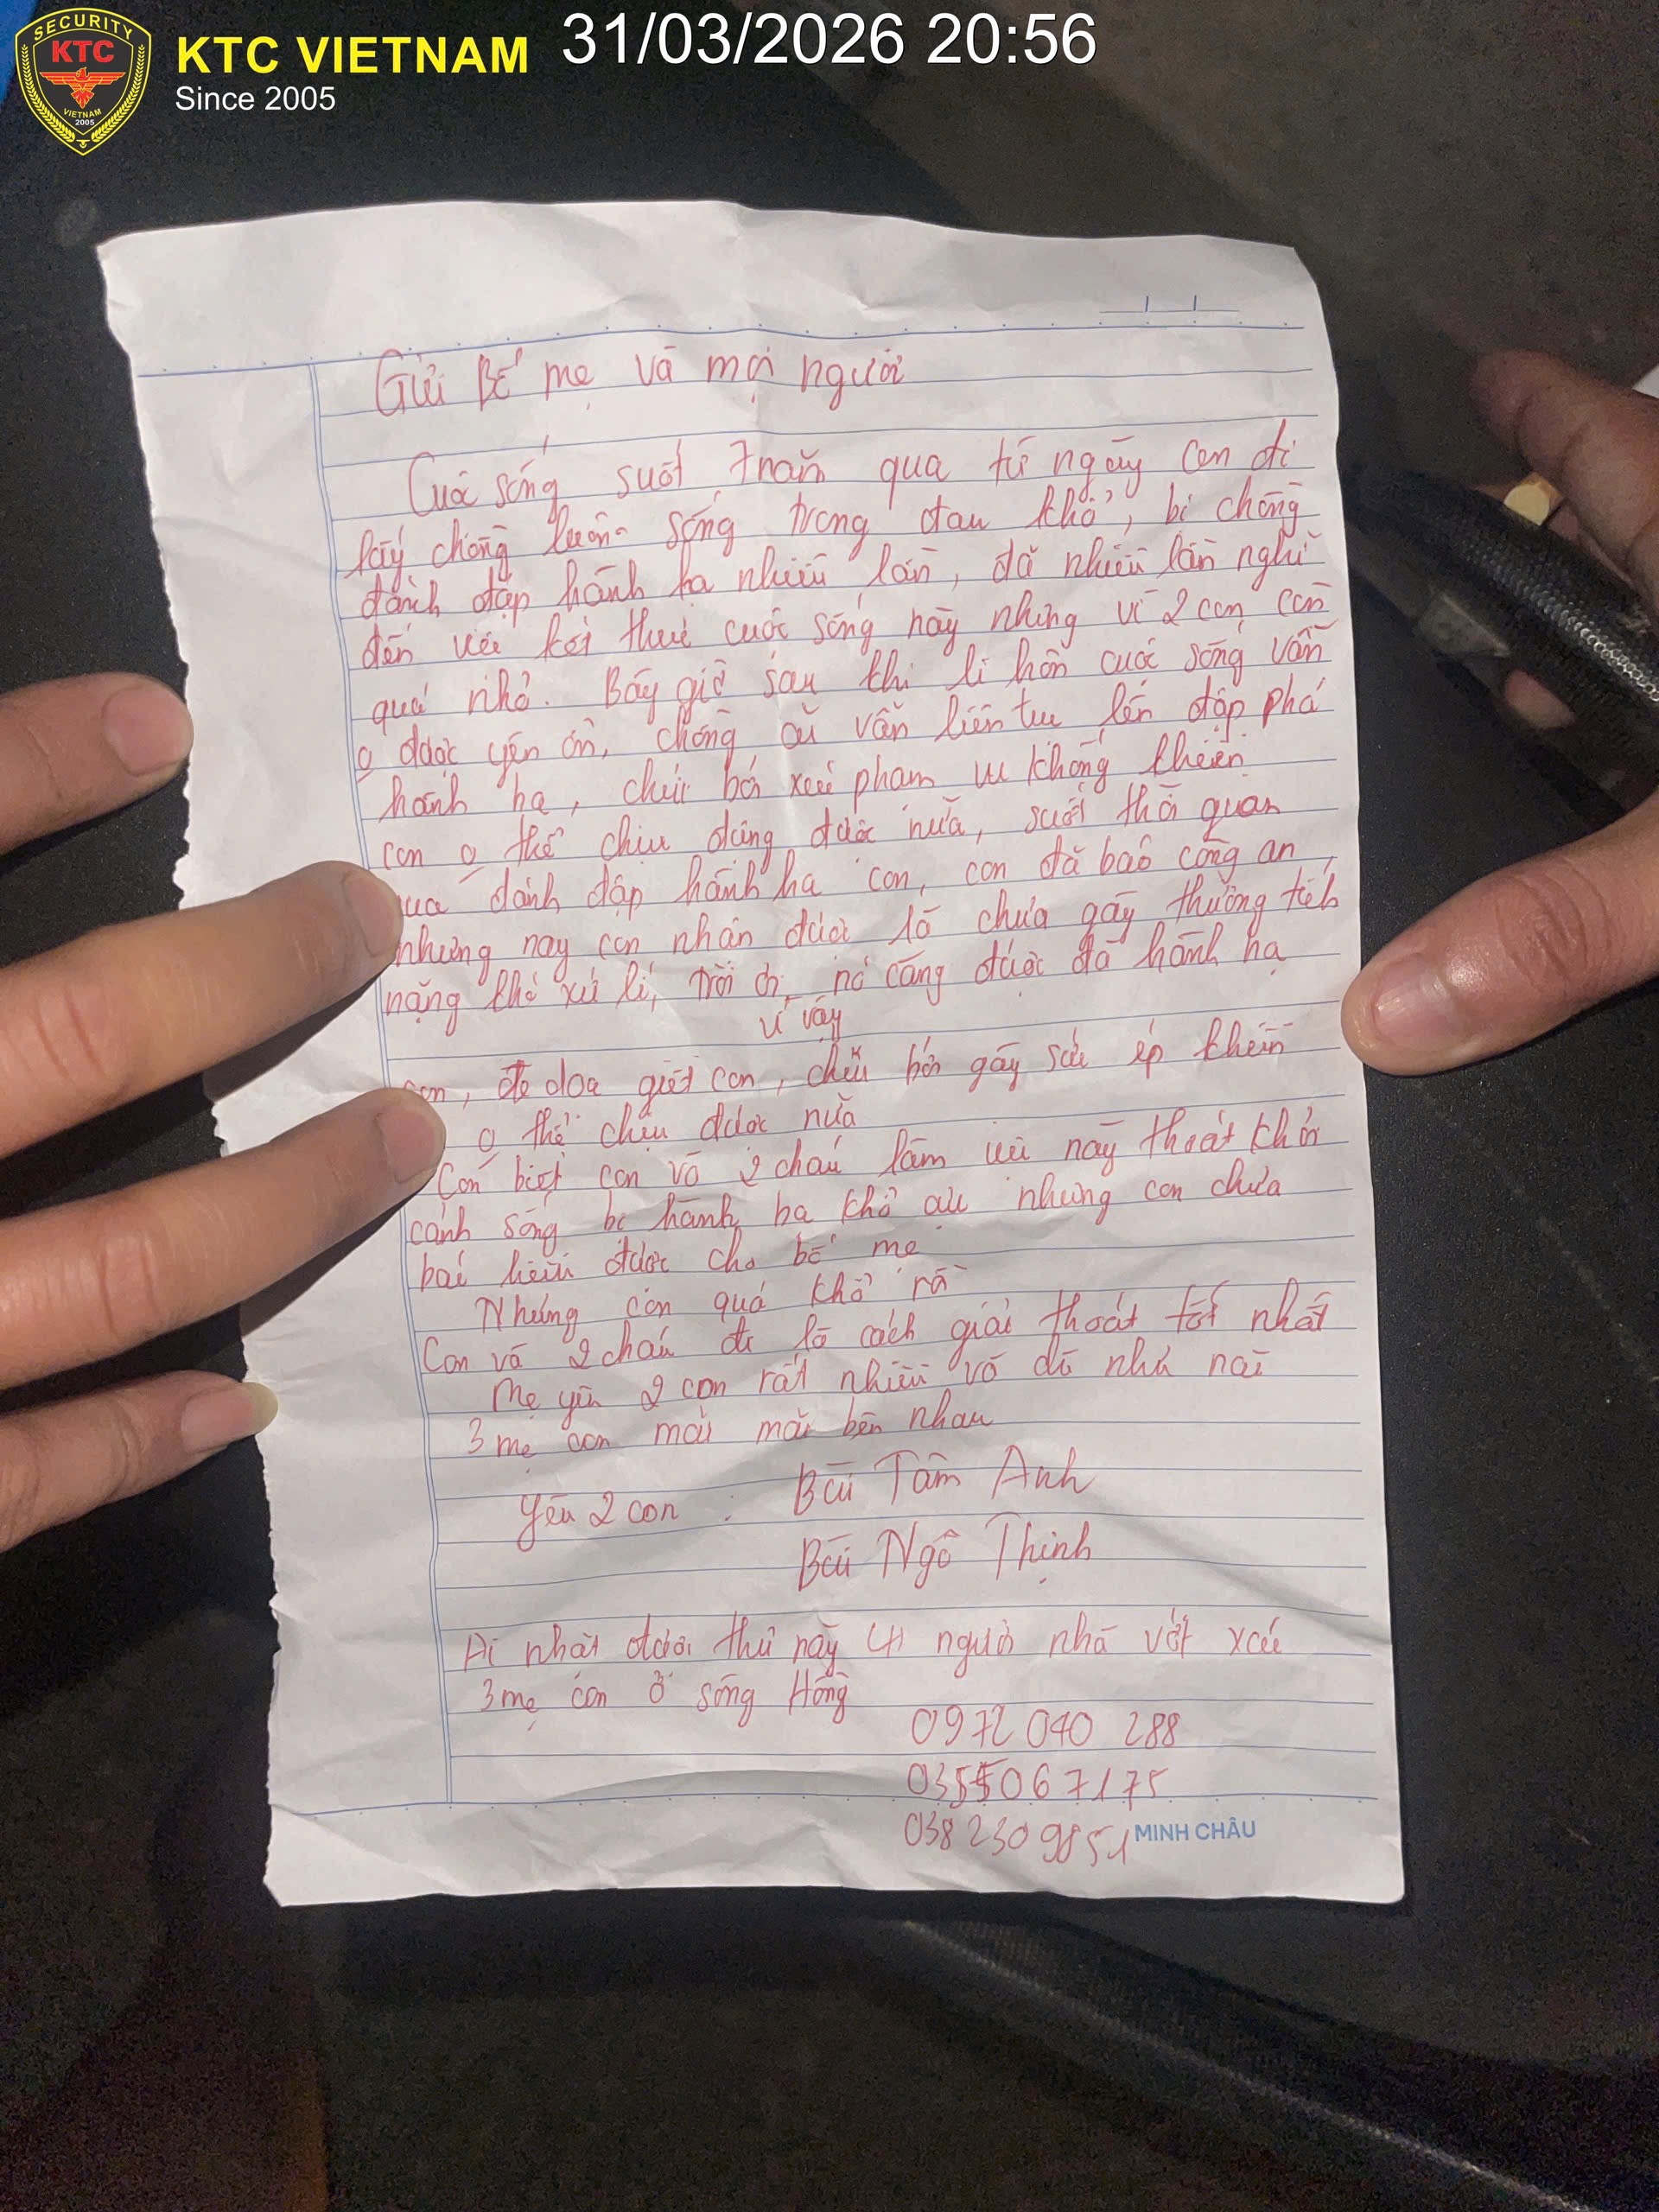 SECURITY
KTC
VIETNAM
2005
KTC VIETNAM
Since 2005
31/03/2026 20:56
Gửi Bố mẹ và mọi người
Cuộc sống suốt 7 năm qua từ ngày con đi
lấy chồng luôn sống trong đau khổ, bị chồng
đánh đập hành hạ nhiều lần, đã nhiều lần nghĩ
đến việc kết thúc cuộc sống này nhưng vì 2 con còn
quá nhỏ. Bây giờ sau khi li hôn cuộc sống vẫn
o được yên ổn, chồng cũ vẫn liên tục đến đập phá
hành hạ, chửi bới xúc phạm khiến
con o thể chịu đựng được nữa, suốt thời quan
qua đánh đập hành hạ con, con đã báo công an
nhưng nay con nhận được là chưa gây thương tích
nặng khó xử lí, trời ơi, nó càng được đà hành hạ
vì vậy
con, đe doạ giết con, chửi bới gây sức ép khiến
o thể chịu được nữa
Con biết con và 2 cháu làm việc này thoát khỏi
cảnh sống bị hành hạ khổ cực nhưng con chưa
báo hiếu được cho bố mẹ
Nhưng con quá khổ rồi
Con và 2 cháu đi là cách giải thoát tốt nhất
Mẹ yêu 2 con rất nhiều và dù
3 mẹ con mãi mãi bên nhau
Yêu 2 con : Bùi Tâm Anh
Bùi Ngô Thịnh
Ai nhặt được thư này người nhà vớt xác
3 mẹ con ở sông Hồng
0972 040 288
0355067175
038 230 9851
MINH CHÂU